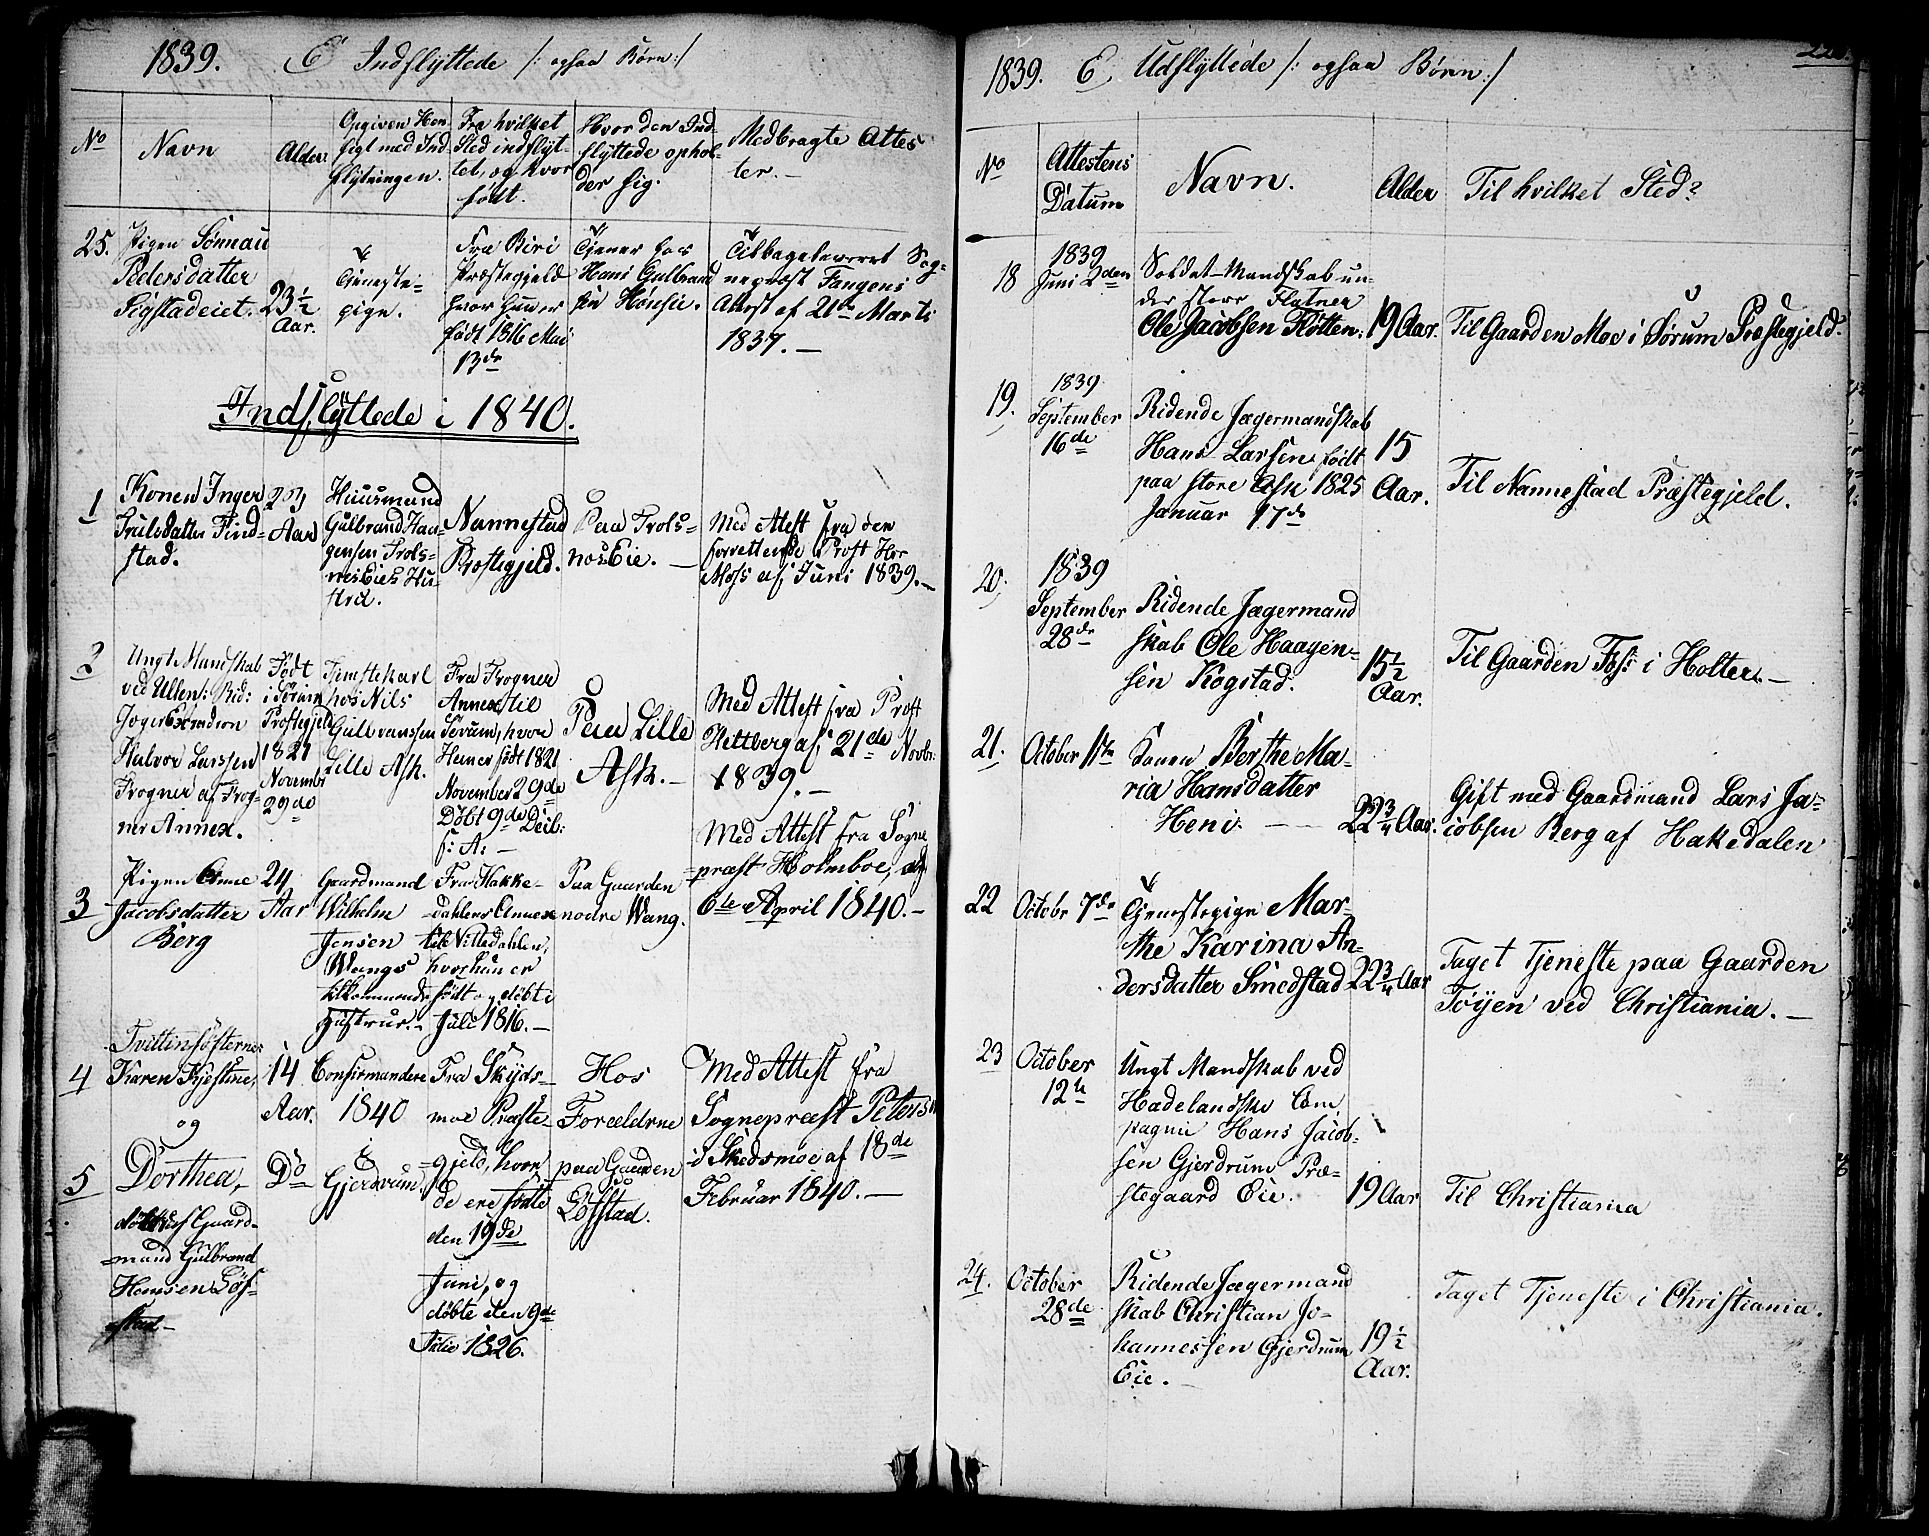 1839. E Indflyttede /: ogsaa Børn :/
No
Navn
Alder
Opgiven Hen
sigt med Ind
flytningen.
Fra hvilket
Sted indflyt-
tet, og hvor
født.
Hvor den Ind-
flyttede ophol-
der sig.
Medbragte Attes
ter.-
25.
Pigen Sønnau
Pedersdatter
Sigstadeiet.
23 1/2
Aar.
Tjeneste-
pige.
Fra Biri
Præstegjeld
hvor hun er
født 1816 Mai
13de
Tjener hos
Hans Gulbrand
sen
Tilbageleveret Sog-
neprest Fangens
Attest af 21de Marti
1837.-
Indflyttede i 1840.
1
Konen Inger
Trulsdatter Find-
stad.
Aar
Huusmand
Gulbrand Haa-
gensen Trols-
nes Eies Hu-
stru.
Nannestad
Præstegjeld.
Paa Trols-
nos Eie.-
Med Attest fra den
forrettende Prost Hr.
Moss af Juni 1839.-
2
Ungt Mandskab
ved Ullens: Rid:
Jæger Escadron
Halvor Larssen
Frogner af Frog-
ner Annex.
Født
i Sørum
Præstegjeld
1821
Novembr
29de
Tjenstekarl
hos Nils
Gulbranssen
Lille Ask.
Fra Frogner
Annex til
Sørum, hvor
Han er født 1821
November 29de
Døbt 9de Decb:
s: A: -
Paa Lille
Ask.-
Med Attest fra Prost
Hettberg af 21de Novbr:
1839.-
3
Pigen Anne
Jacobsdatter
Berg
24
Aar
Gaardmand
Wilhelm
Jensen
Wangs
tilkommende
Hustrue.-
Fra Hakke-
dahlens Annex
til Nittedahlen,
hvor hun er
født og døbt i
Juli 1816.-
Paa Gaarden
nedre Wang.
Med Attest fra Sogne
præst Holmboe, af
6te April 1840.-
4
Tvillinsøsterne
Karen Kjestine,
og
14
Aar.
Confirmandere
1840
i
Gjerdrum
Fra Skyds-
moe Præste-
gjeld, hvor
de ere fødte
den 19de
Juni, og
døbte den 9de
Julii 1826.
Hos
Forældrne
paa Gaarden
Løfstad.
Med Attest fra
Sognepræst Petersen
i Skedsmoe af 18de
Februar 1840.-
5
Dorthea,
døttre af Gaard-
mand Gulbrand
Hansen Løf-
stad-
Do
1839. E Udflyttede /: ogsaa Børn :/
No
Attestens
Datum
Navn.
Alder
Til hvilket Sted?
18
1839
Juni 2den
Soldat-Mandskab un-
der store Flatner
Ole Jacobsen Fløtten.
19 Aar.
Til Gaarden Moe i Sørum Præstegjeld.
19.
1839
September
16de
Ridende Jægermandskab
Hans Larsen, født
paa store Ask 1825
Januar 17de
15
Aar.
Til Nannestad Præstegjeld.
20.
1839
September
28de
Ridende Jægermand
skab Ole Haagen-
sen Kogstad.
15 1/2
Aar.
Til Gaarden Fos: i Holter.-
21.
October 1ste
Konen Berthe Ma-
ria Hansdatter
Heni.
22 3/4 Aar.
Gift med Gaardmand Lars Ja-
cobsen Berg af Hakedalen
22
Octobr 7de
Tjenestepige Mar-
the Karina An-
dersdatter Smedstad
22 3/4 Aar
Taget Tjeneste paa Gaarden
Tøijen ved Christiania.-
23
October
12te
Ungt Mandskab ved
Hadelandske Com
pagnie Hans Jacob-
sen Gjerdrum Præ-
stegaard Eie.
19 Aar
Til Christiania
24.
October
28de
Ridende Jægermand
skab Christian Jo-
hannessen Gjerdrum
Eie.-
19 1/2
Aar.
Taget Tjeneste i Christiania.